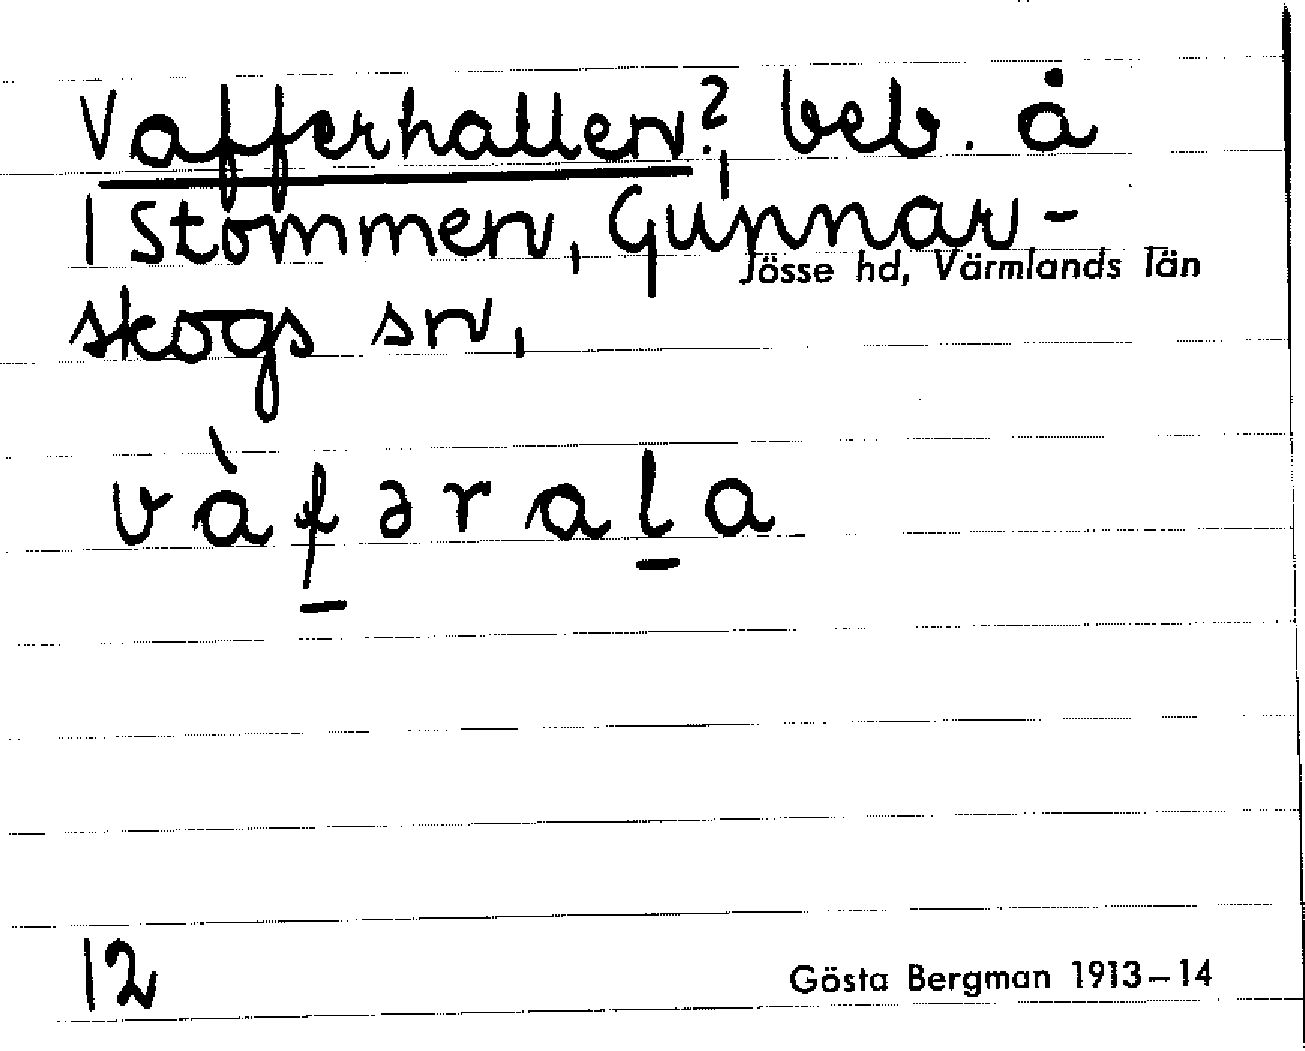 Vafferhallen?, beb. å
1 Stommen, Gunnar-
Jösse hd, Värmlands län
skogs sn,
vàfərala
12
Gösta Bergman 1913–14